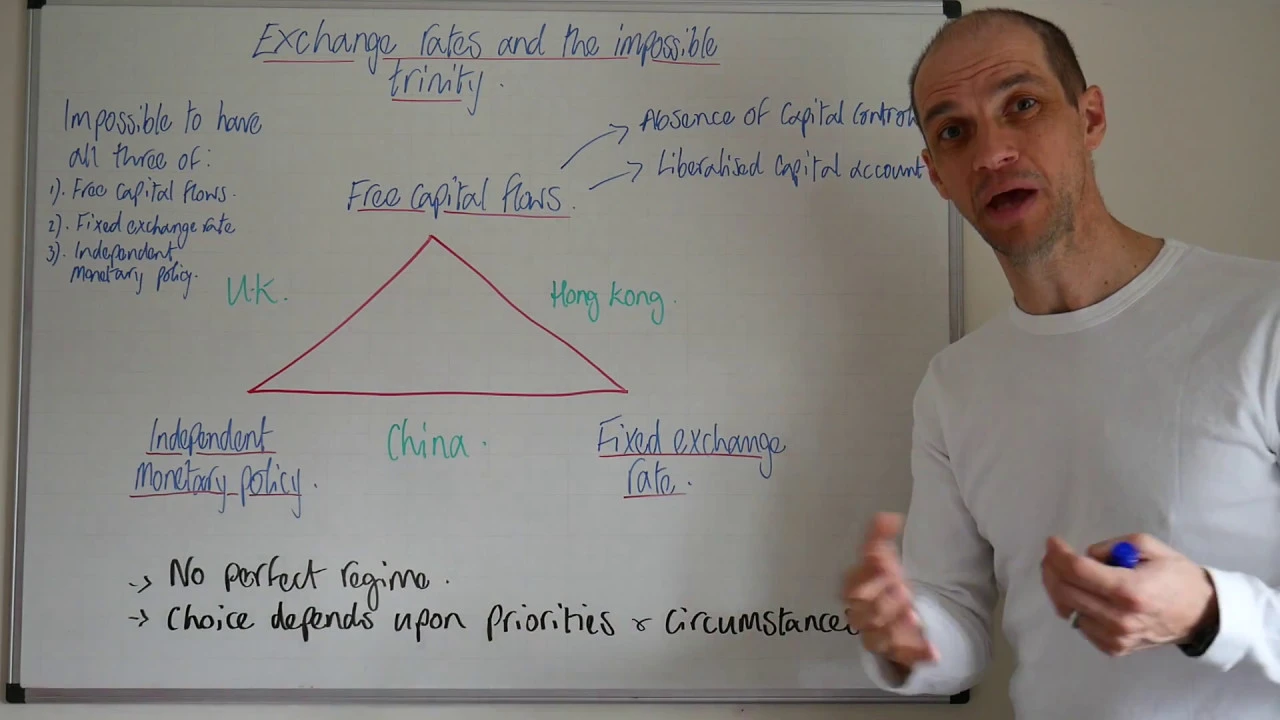 Exchange rates and the impossible
trinity.
Impossible to have
all three of:
1). Free capital flows.
2). Fixed exchange rate
3). Independent
Monetary policy.
Absence of Capital Control
Liberalised Capital account
Free capital flows.
U.K.
Hong Kong.
Independent
Monetary policy.
China.
Fixed exchange
rate.
-> No perfect regime.
-> Choice depends upon priorities & circumstances